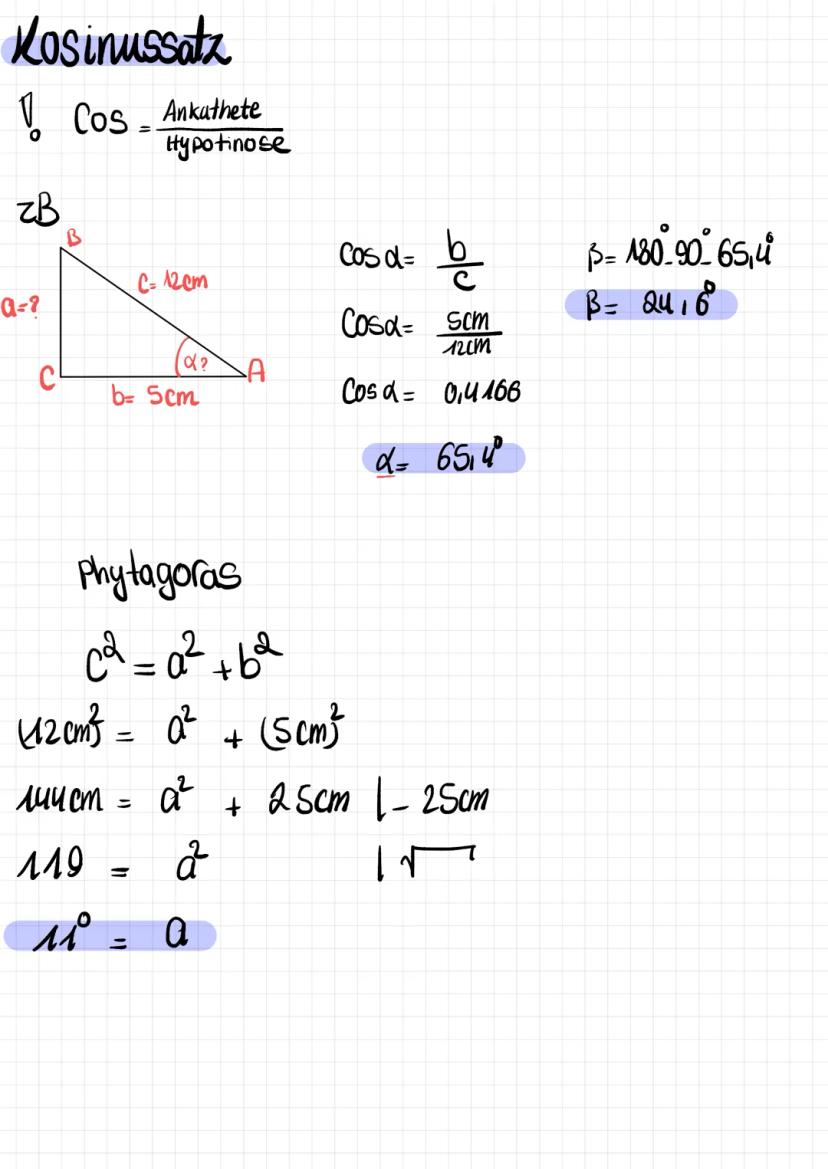 Kosinussatz
! Cos = Ankathete / Hypotinose
zB
B
c= 12cm
a=?
α?
C
A
b= 5cm
Cos α= b / c
Cosα= 5cm / 12cm
Cos α= 0,4166
α= 65,4°
β= 180°-90°-65,4°
β= 24,6°
Phytagoras
c² = a² + b²
(12cm)² = a² + (5cm)²
144cm = a² + 25cm |- 25cm
119 = a² |√
11° = a